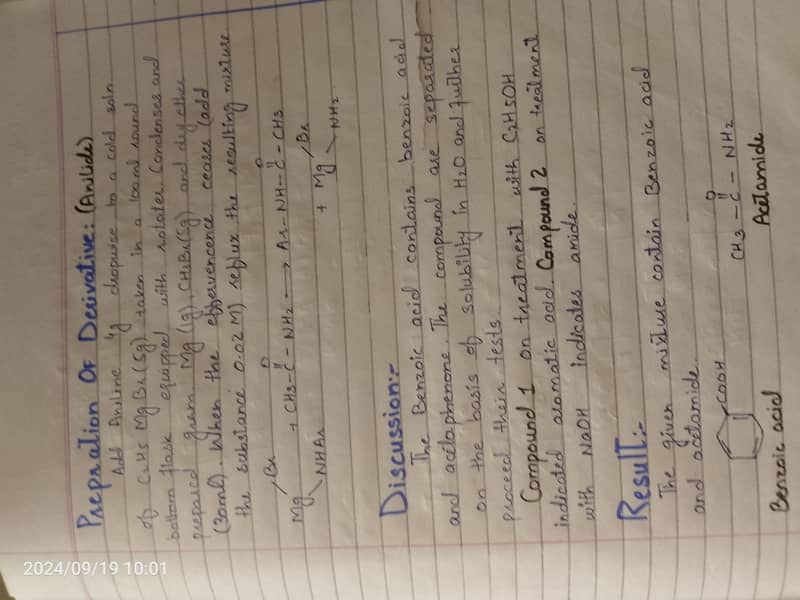 Prepration Of Derivative: (Anilide)
Add Aniline 4g dropwise to a cold soln
of C2H5 MgBr (5g) taken in a 100ml round
bottom flask equipped with rotater Condenses and
prepared gram Mg (1g), CH3Br (5g) and dry ether
(30ml). When the effervencence ceases (add
the substance 0.02 M) reflux the resulting mixture
Mg Br NHAr + CH3-C-NH2 → Ar-NH-C-CH3
O O
+ Mg Br NH2
Discussion:-
The Benzoic acid contains benzoic acid
and acetaphenone. The compound are separated
on the basis of solubility in H2O and further
proceed their tests.
Compound 1 on treatment with C2H5OH
indicated aromatic acid. Compound 2 on treatment
with NaOH indicates amide.
Result:-
The given mixture contain Benzoic acid
and acetamide.
COOH
O
CH3-C-NH2
Benzoic acid
Acetamide
2024/09/19 10:01